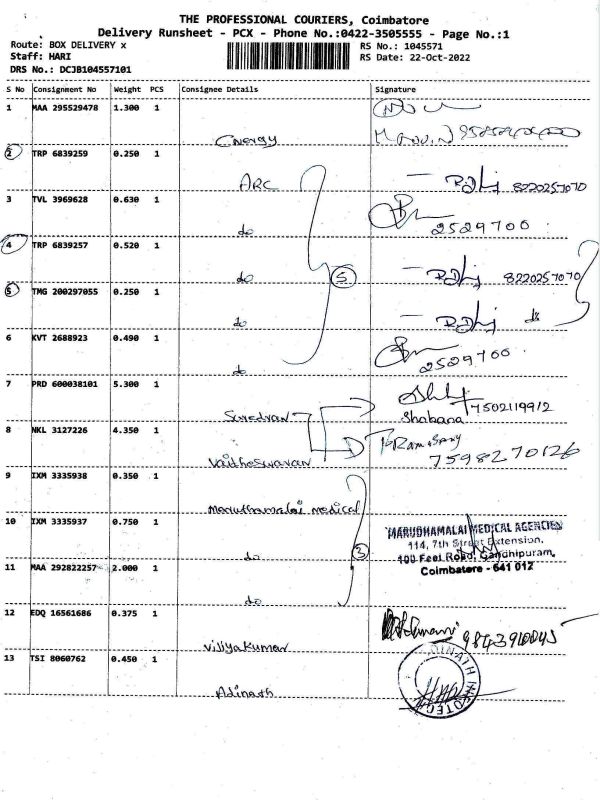 THE PROFESSIONAL COURIERS, Coimbatore
Delivery Runsheet - PCX - Phone No.:0422-3505555 - Page No.:1
Route: BOX DELIVERY x
RS No.: 1045571
Staff: HARI
RS Date: 22-Oct-2022
DRS No.: DCJB104557101
S No Consignment No Weight PCS Consignee Details Signature
1 MAA 295529478 1.300 1
Energy
2 TRP 6839259 0.250 1
ARC 8220257070
3 TVL 3969628 0.630 1
do 2529700
4 TRP 6839257 0.520 1
do 5 8220257070
5 TMG 200297055 0.250 1
do do
6 KVT 2688923 0.490 1
do 2529700
7 PRD 600038101 5.300 1
7502119912
Shabana
8 NKL 3127226 4.350 1
Vaitheswaran 7598270126
9 IXM 3335938 0.350 1
Maruthamalai medical
10 IXM 3335937 0.750 1
do 3
MARUDHAMALAI MEDICAL AGENCIES
114, 7th Street Extension,
100 Feet Road, Gandhipuram,
Coimbatore - 641 012
11 MAA 292822257 2.000 1
do
12 EDQ 16561686 0.375 1
Vijiyakumar
13 TSI 8060762 0.450 1
Adinath